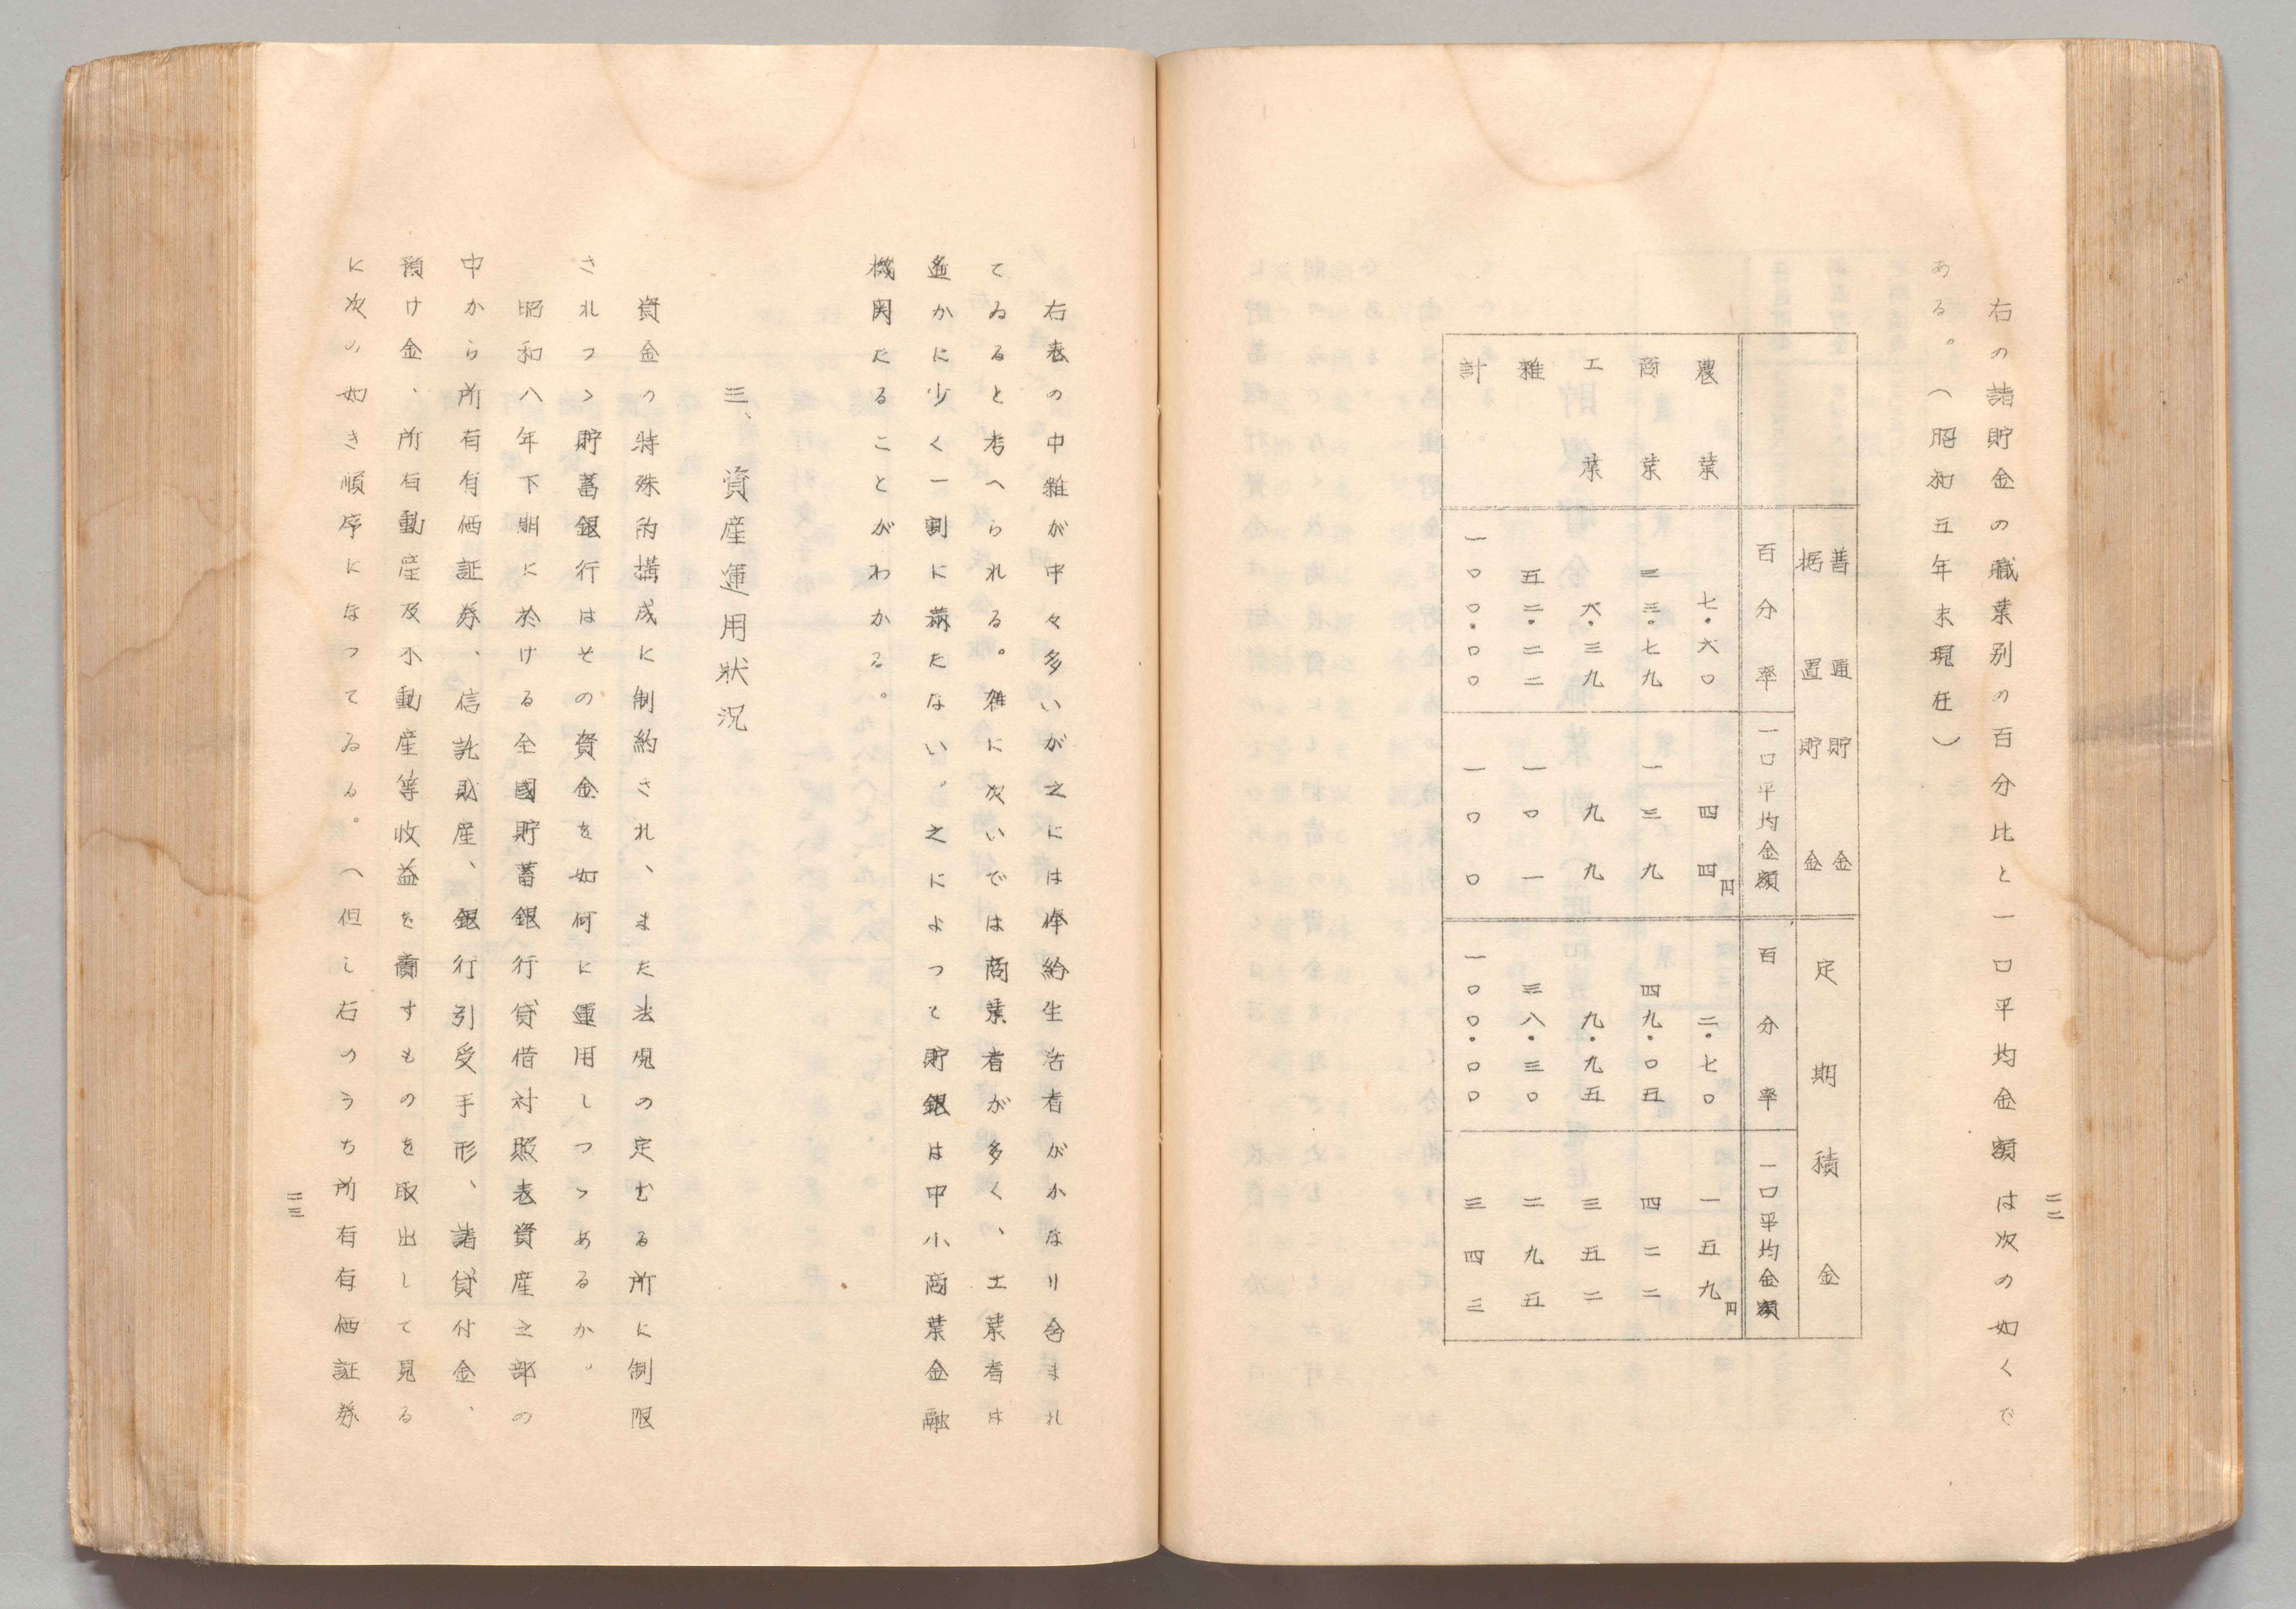 二二
右の諸貯金の職業別の百分比と一口平均金額は次の如くで
ある。（昭和五年末現在）
普通貯金
据置貯金
定期積金
百分率
一口平均金額
百分率
一口平均金額
農業 七・六〇 四四円 二・七〇 一五九円
商業 三三・七九 一三九 四九・〇五 四二二
工業 六・三九 九九 九・九五 三五二
雑 五二・二二 一〇一 三八・三〇 二九五
計 一〇〇・〇〇 一〇〇 一〇〇・〇〇 三四三
右表の中雑が中々多いが之には俸給生活者がかなり含まれ
てゐると考へられる。雑に次いでは商業者が多く、工業者は
遙かに少く一割に満たない。之によつて貯銀は中小商業金融
機関たることがわかる。
三、資産運用状況
資金の特殊的構成に制約され、また法規の定むる所に制限
されつゝ貯蓄銀行はその資金を如何に運用しつつあるか。
昭和八年下期に於ける全國貯蓄銀行貸借対照表資産之部の
中から所有有価証券、信託財産、銀行引受手形、諸貸付金、
預け金、所有動産及不動産等收益を齎すものを取出して見る
に次の如き順序になつてゐる。（但し右のうち所有有価証券
二三